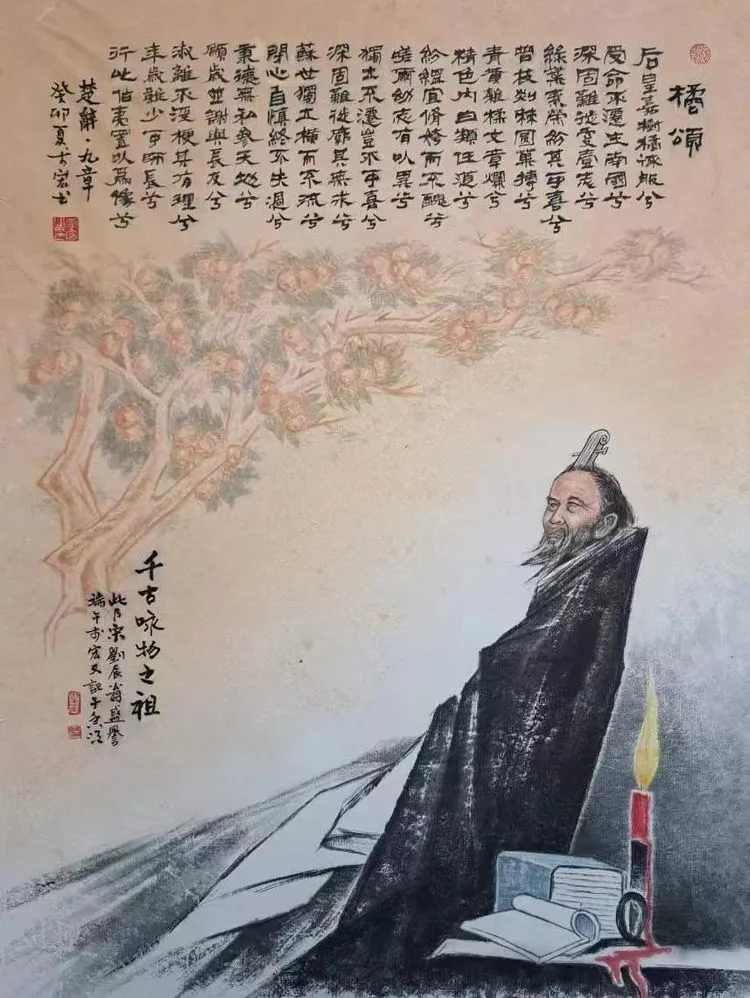 橘頌
后皇嘉樹橘徠服兮
受命不遷生南國兮
深固難徙更壹志兮
綠葉素榮紛其可喜兮
曾枝剡棘圓果摶兮
青黃雜糅文章爛兮
精色內白類任道兮
紛縕宜脩姱而不醜兮
嗟爾幼志有以異兮
獨立不遷豈不可喜兮
深固難徙廓其無求兮
蘇世獨立橫而不流兮
閉心自慎終不失過兮
秉德無私參天地兮
願歲並謝與長友兮
淑離不淫梗其有理兮
年歲雖少可師長兮
行比伯夷置以為像兮
楚辭·九章
癸卯夏宏书
千古咏物之祖
此乃宋劉辰翁盛譽
端午前宏又記于